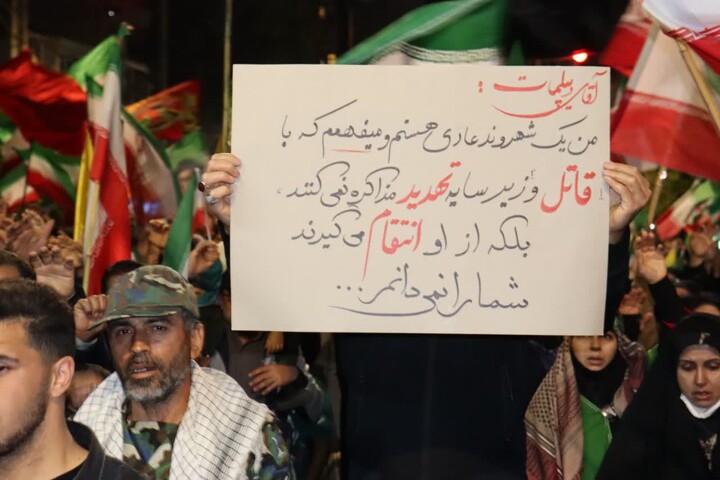 آقای دیپلمات :
من یک شهروند عادی هستم و میفهمم که با
قاتل و زیر سایه تهدید مذاکره نمی کنند،
بلکه از او انتقام می گیرند
شما را نمی دانم...